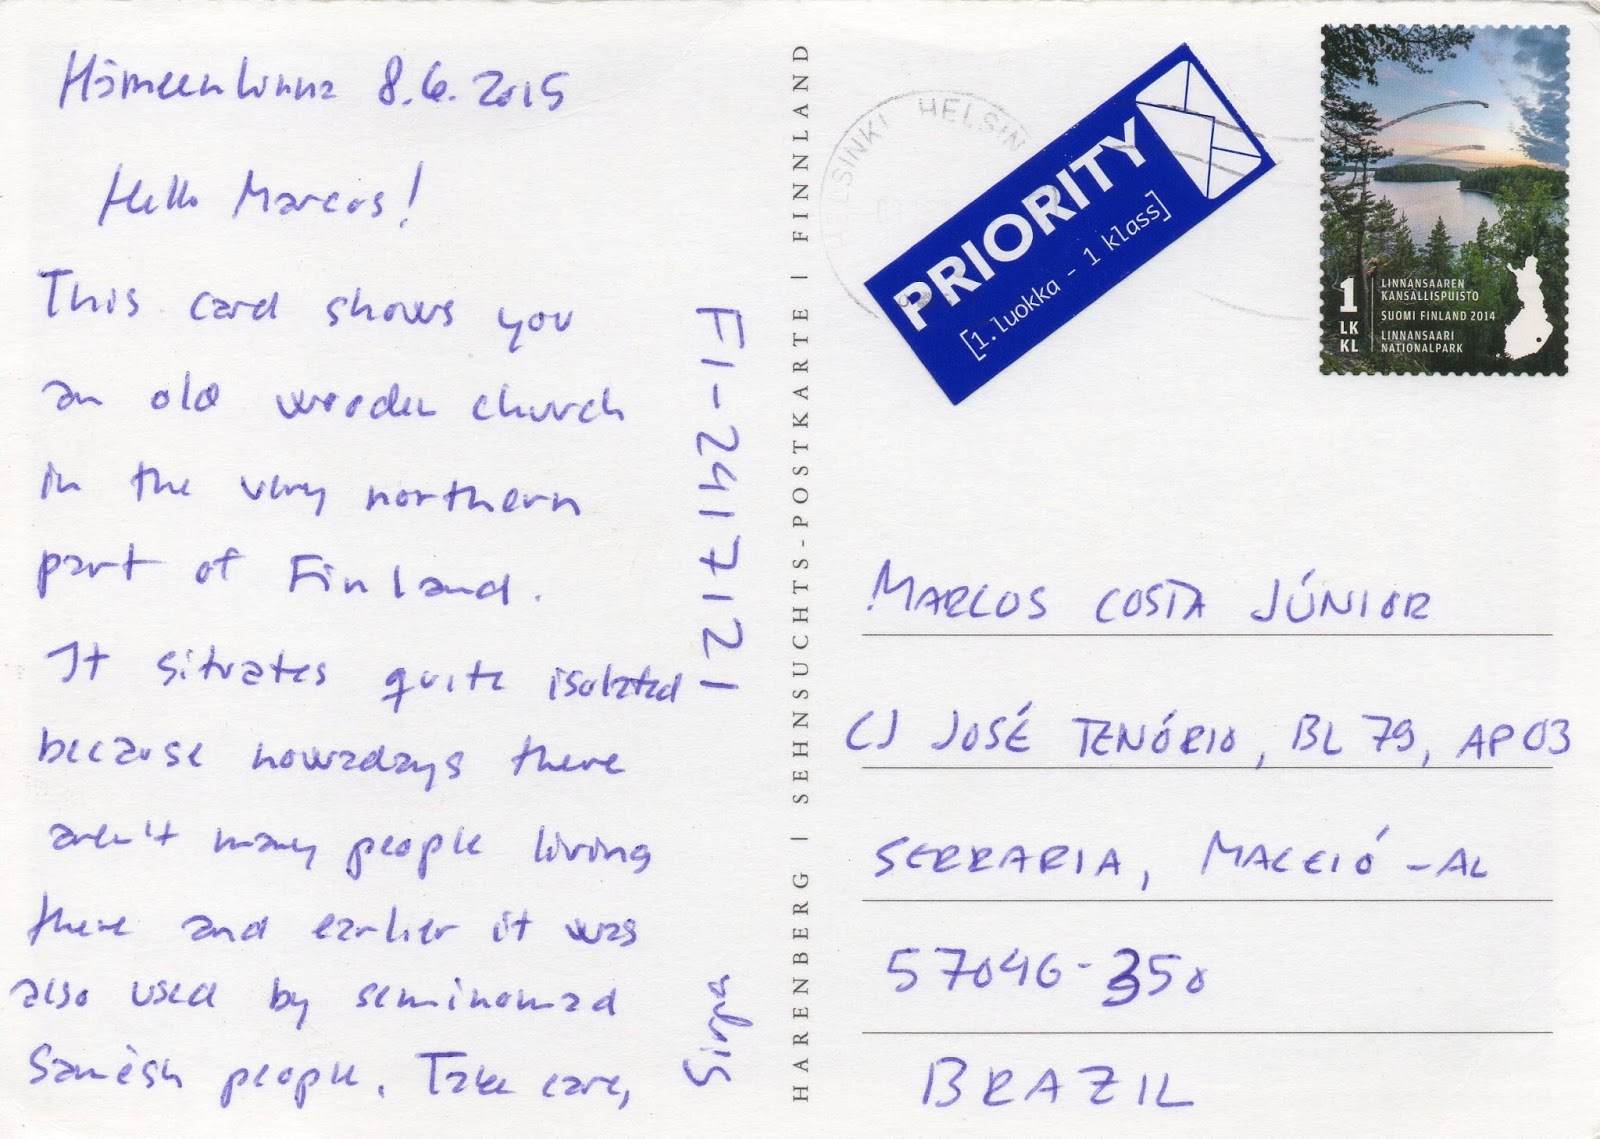 Hämeenlinna 8.6.2015
Hello Marcos!
This card shows you
an old wooden church
in the very northern
part of Finland.
It situates quite isolated
because nowadays there
aren't many people living
there and earlier it was
also used by seminomad
Samèsh people. Take care,
Sirpa
FI-2417121
HARENBERG | SEHNSUCHTS-POSTKARTE | FINNLAND
HELSINKI HELSIN
PRIORITY
[1. luokka - 1 klass]
1
LK
KL
LINNANSAAREN
KANSALLISPUISTO
SUOMI FINLAND 2014
LINNANSAARI
NATIONALPARK
MARCOS COSTA JÚNIOR
CJ JOSÉ TENÓRIO, BL 79, AP 03
SERRARIA, MACEIÓ - AL
57046-350
BRAZIL